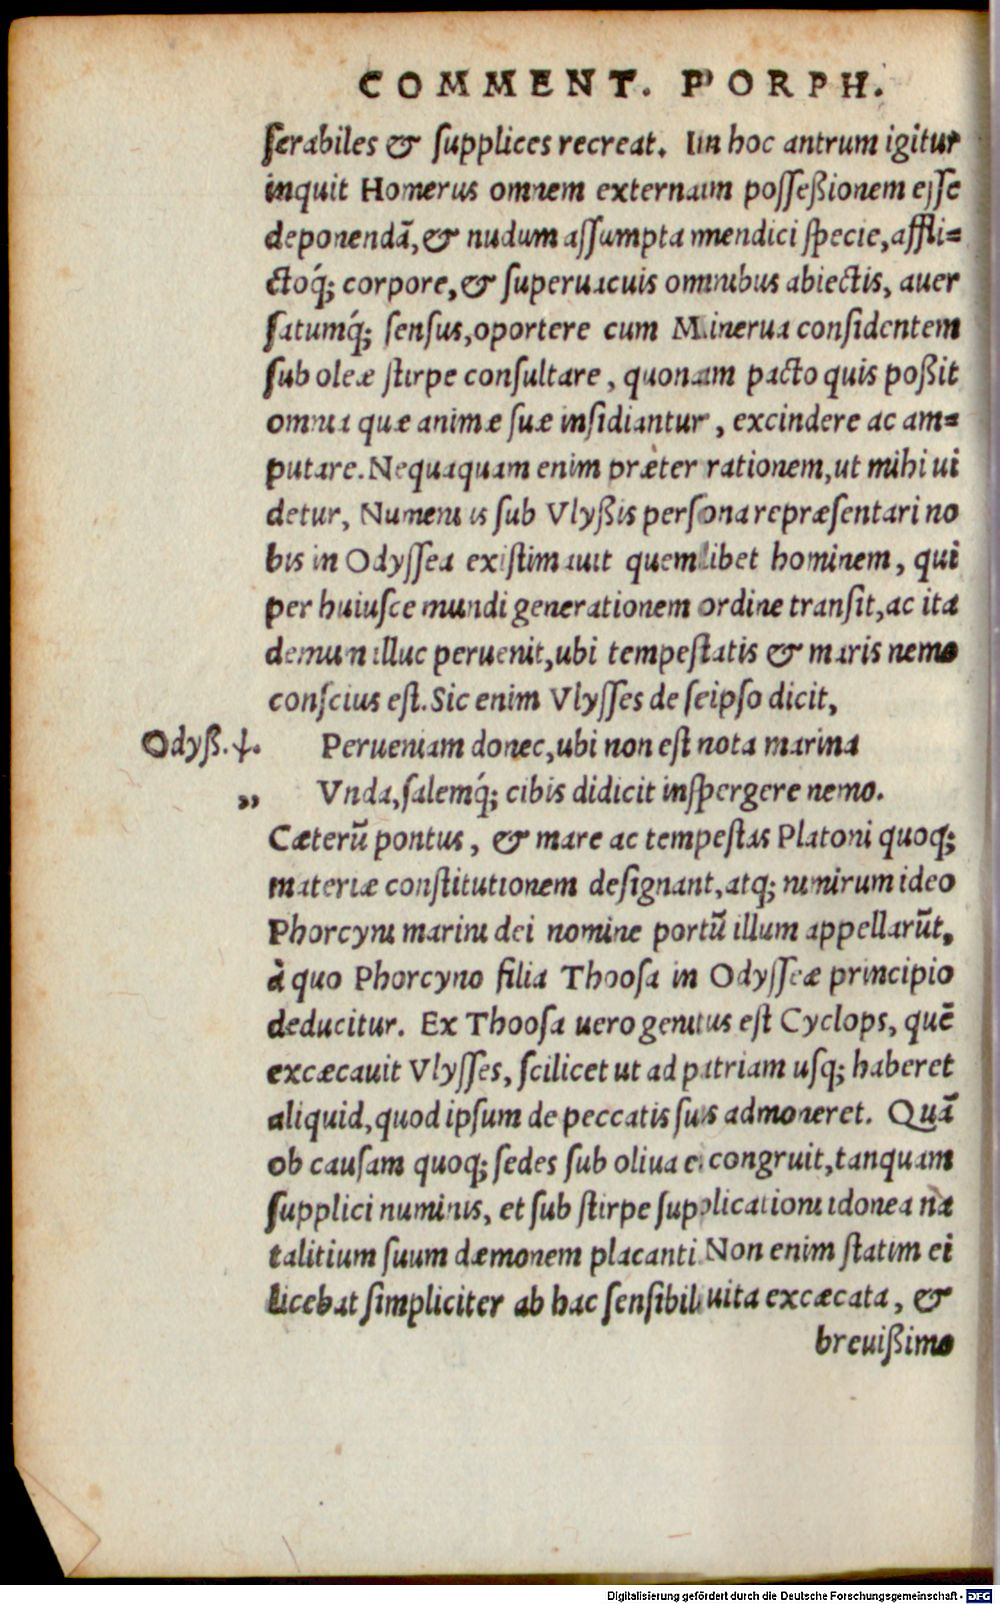 COMMENT. PORPH.
serabiles & supplices recreat. In hoc antrum igitur
inquit Homerus omnem externam posseßionem esse
deponendā, & nudum assumpta mendici specie, affli=
ctoq́; corpore, & superuacuis omnibus abiectis, auer
satumq́; sensus, oportere cum Minerua considentem
sub oleæ stirpe consultare, quonam pacto quis poßit
omnia quæ animæ suæ insidiantur, excindere ac am=
putare. Nequaquam enim præter rationem, ut mihi ui
detur, Numenius sub Vlyßis persona repræsentari no
bis in Odyssea existimauit quemlibet hominem, qui
per huiusce mundi generationem ordine transit, ac ita
demum illuc peruenit, ubi tempestatis & maris nemo
conscius est. Sic enim Vlysses de seipso dicit,
Odyß. ↓. Perueniam donec, ubi non est nota marina
„ Vnda, salemq́; cibis didicit inspergere nemo.
Cæterū pontus, & mare ac tempestas Platoni quoq;
materiæ constitutionem designant, atq; nimirum ideo
Phorcyni marini dei nomine portū illum appellarūt,
à quo Phorcyno filia Thoosa in Odysseæ principio
deducitur. Ex Thoosa uero genitus est Cyclops, quē
excæcauit Vlysses, scilicet ut ad patriam usq; haberet
aliquid, quod ipsum de peccatis suis admoneret. Quā
ob causam quoq; sedes sub oliua ei congruit, tanquam
supplici numinis, et sub stirpe supplicationi idonea na
talitium suum dæmonem placanti. Non enim statim ei
licebat simpliciter ab hac sensibili uita excæcata, &
breuißimo
Digitalisierung gefördert durch die Deutsche Forschungsgemeinschaft - DFG